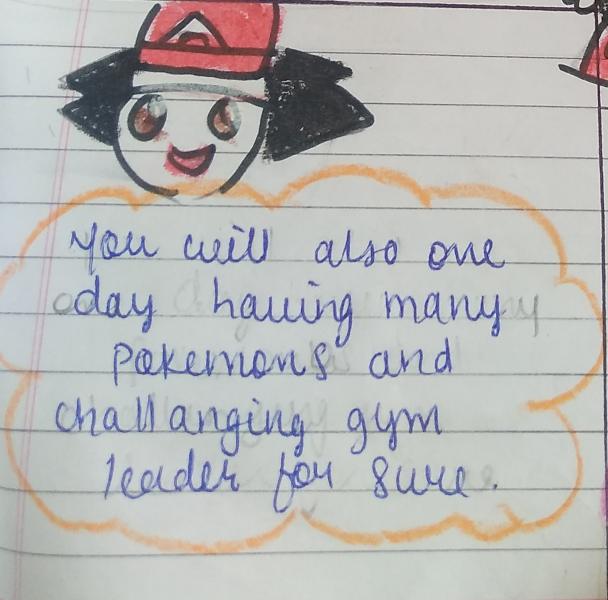 You will also one
day hauing many
pakemons and
challanging gym
leader for sure.